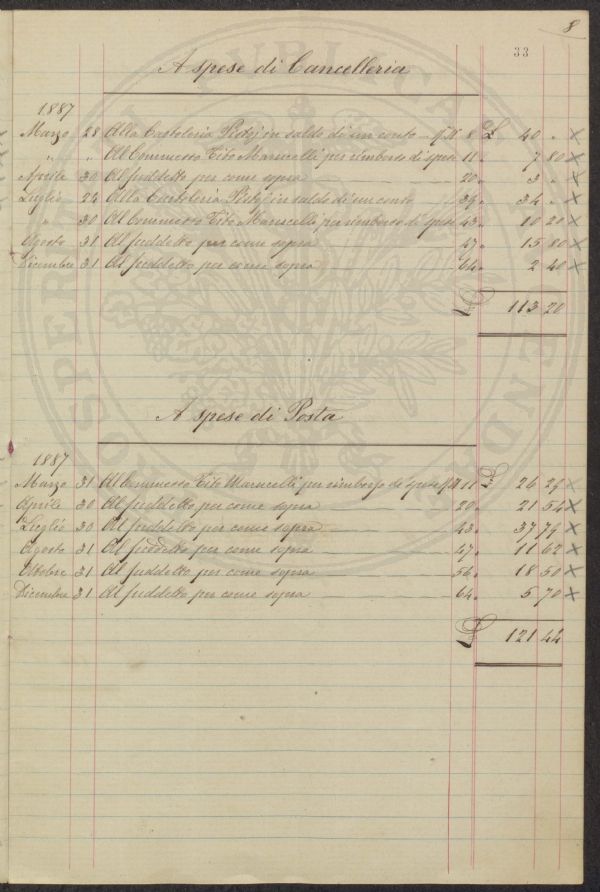 8
33
A spese di Cancelleria
1887
Marzo 28 Alla Cartoleria in saldo di un conto 8 £ 40 . ×
" " Al Commesso Tito Marucelli per rimborso di spese 11 . 7 80 ×
Aprile 30 Al suddetto per come sopra 20 . 3 . ×
Luglio 24 Alla Cartoleria in saldo di un conto 39 . 34 . ×
" 30 Al Commesso Tito Marucelli per rimborso di spese 43 . 10 20 ×
Agosto 31 Al suddetto per come sopra 47 . 15 80 ×
Dicembre 31 Al suddetto per come sopra 64 . 2 40 ×
£ 113 20
A spese di Posta
1887
Marzo 31 Al Commesso Tito Marucelli per rimborso di spese 11 £ 26 29 ×
Aprile 30 Al suddetto per come sopra 20 . 21 54 ×
Luglio 30 Al suddetto per come sopra 43 . 37 74 ×
Agosto 31 Al suddetto per come sopra 47 . 11 62 ×
Ottobre 31 Al suddetto per come sopra 56 . 18 50 ×
Dicembre 31 Al suddetto per come sopra 64 . 5 70 ×
£ 121 42